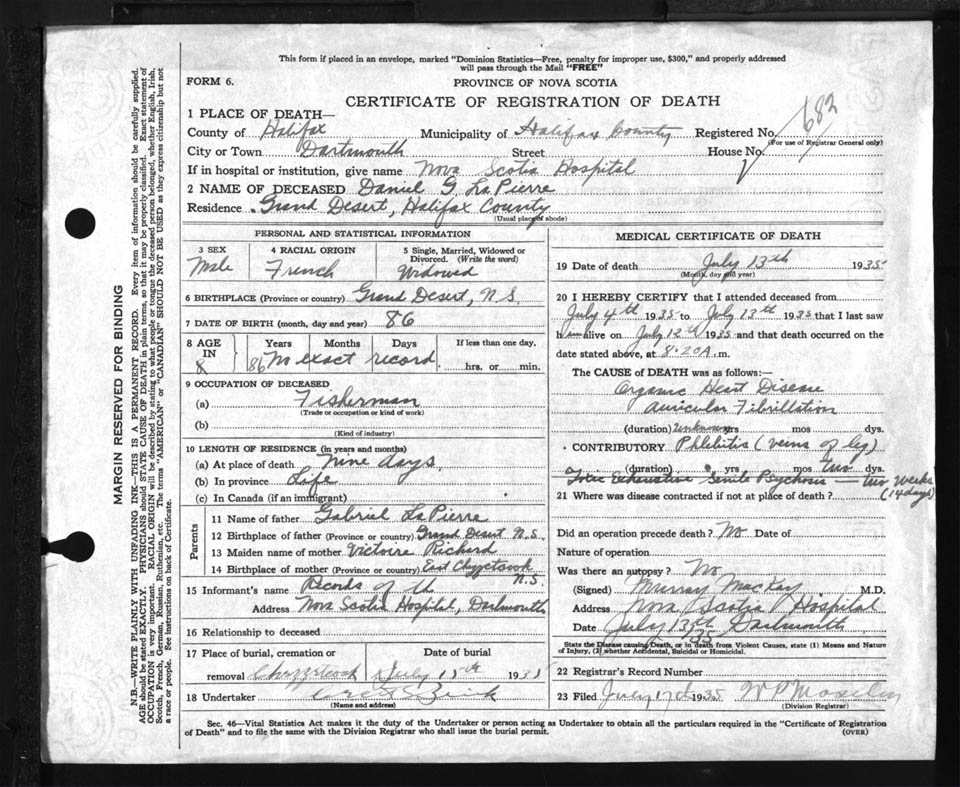 This form if placed in an envelope, marked "Dominion Statistics—Free, penalty for improper use, $300," and properly addressed
will pass through the Mail "FREE"
FORM 6.
PROVINCE OF NOVA SCOTIA
CERTIFICATE OF REGISTRATION OF DEATH
1 PLACE OF DEATH—
County of Halifax Municipality of Halifax County Registered No. 682
(For use of Registrar General only)
City or Town Dartmouth Street House No.
If in hospital or institution, give name Nova Scotia Hospital
2 NAME OF DECEASED Daniel G. La Pierre
Residence Grand Desert, Halifax County
(Usual place of abode)
PERSONAL AND STATISTICAL INFORMATION
3 SEX 4 RACIAL ORIGIN 5 Single, Married, Widowed or
Divorced. (Write the word)
Male French Widowed
6 BIRTHPLACE (Province or country) Grand Desert, N.S.
7 DATE OF BIRTH (month, day and year) 86
8 AGE IN Years Months Days If less than one day,
86 exact record hrs. or min.
9 OCCUPATION OF DECEASED
(a) Fisherman
(Trade or occupation or kind of work)
(b)
(Kind of industry)
10 LENGTH OF RESIDENCE (in years and months)
(a) At place of death Nine days
(b) In province Life
(c) In Canada (if an immigrant)
Parents
11 Name of father Gabriel La Pierre
12 Birthplace of father (Province or country) Grand Desert N.S.
13 Maiden name of mother Victoire Richard
14 Birthplace of mother (Province or country) East Chezzetcook
N.S.
15 Informant's name Records of the
Address Nova Scotia Hospital, Dartmouth
16 Relationship to deceased
17 Place of burial, cremation or Date of burial
removal Chezzetcook July 15th 1935
18 Undertaker
(Name and address)
MEDICAL CERTIFICATE OF DEATH
19 Date of death July 13th 1935
(Month, day and year)
20 I HEREBY CERTIFY that I attended deceased from
July 4th 1935 to July 13th 1935 that I last saw
him alive on July 12th 1935 and that death occurred on the
date stated above, at 8.20A.m.
The CAUSE of DEATH was as follows:—
Organic Heart Disease
Auricular Fibrillation
(duration) Unknown yrs mos dys.
CONTRIBUTORY Phlebitis (veins of leg)
(duration) yrs mos two dys.
Toxic Exhaustive Senile Psychosis — two weeks
(14 days)
21 Where was disease contracted if not at place of death?
Did an operation precede death? No Date of
Nature of operation
Was there an autopsy? No
(Signed) Murray MacKay M.D.
Address Nova Scotia Hospital
Date July 13th Dartmouth
/35
State the Disease causing Death, or in death from Violent Causes, state (1) Means and Nature
of Injury, (2) whether Accidental, Suicidal or Homicidal.
22 Registrar's Record Number
23 Filed July 17th 1935 W P Moseley
(Division Registrar)
Sec. 46—Vital Statistics Act makes it the duty of the Undertaker or person acting as Undertaker to obtain all the particulars required in the "Certificate of Registration
of Death" and to file the same with the Division Registrar who shall issue the burial permit.
(OVER)
MARGIN RESERVED FOR BINDING
N.B.—WRITE PLAINLY WITH UNFADING INK—THIS IS A PERMANENT RECORD. Every item of information should be carefully supplied.
AGE should be stated EXACTLY. PHYSICIANS should STATE CAUSE OF DEATH in plain terms, so that it may be properly classified. Exact statement of
OCCUPATION is very important. RACIAL ORIGIN will be described by stating to what people or tongue the deceased person belonged, whether English, Irish,
Scotch, French, German, Russian, Ruthenian, etc. The terms "AMERICAN" or "CANADIAN" SHOULD NOT BE USED as they express citizenship but not
a race or people. See instructions on back of Certificate.